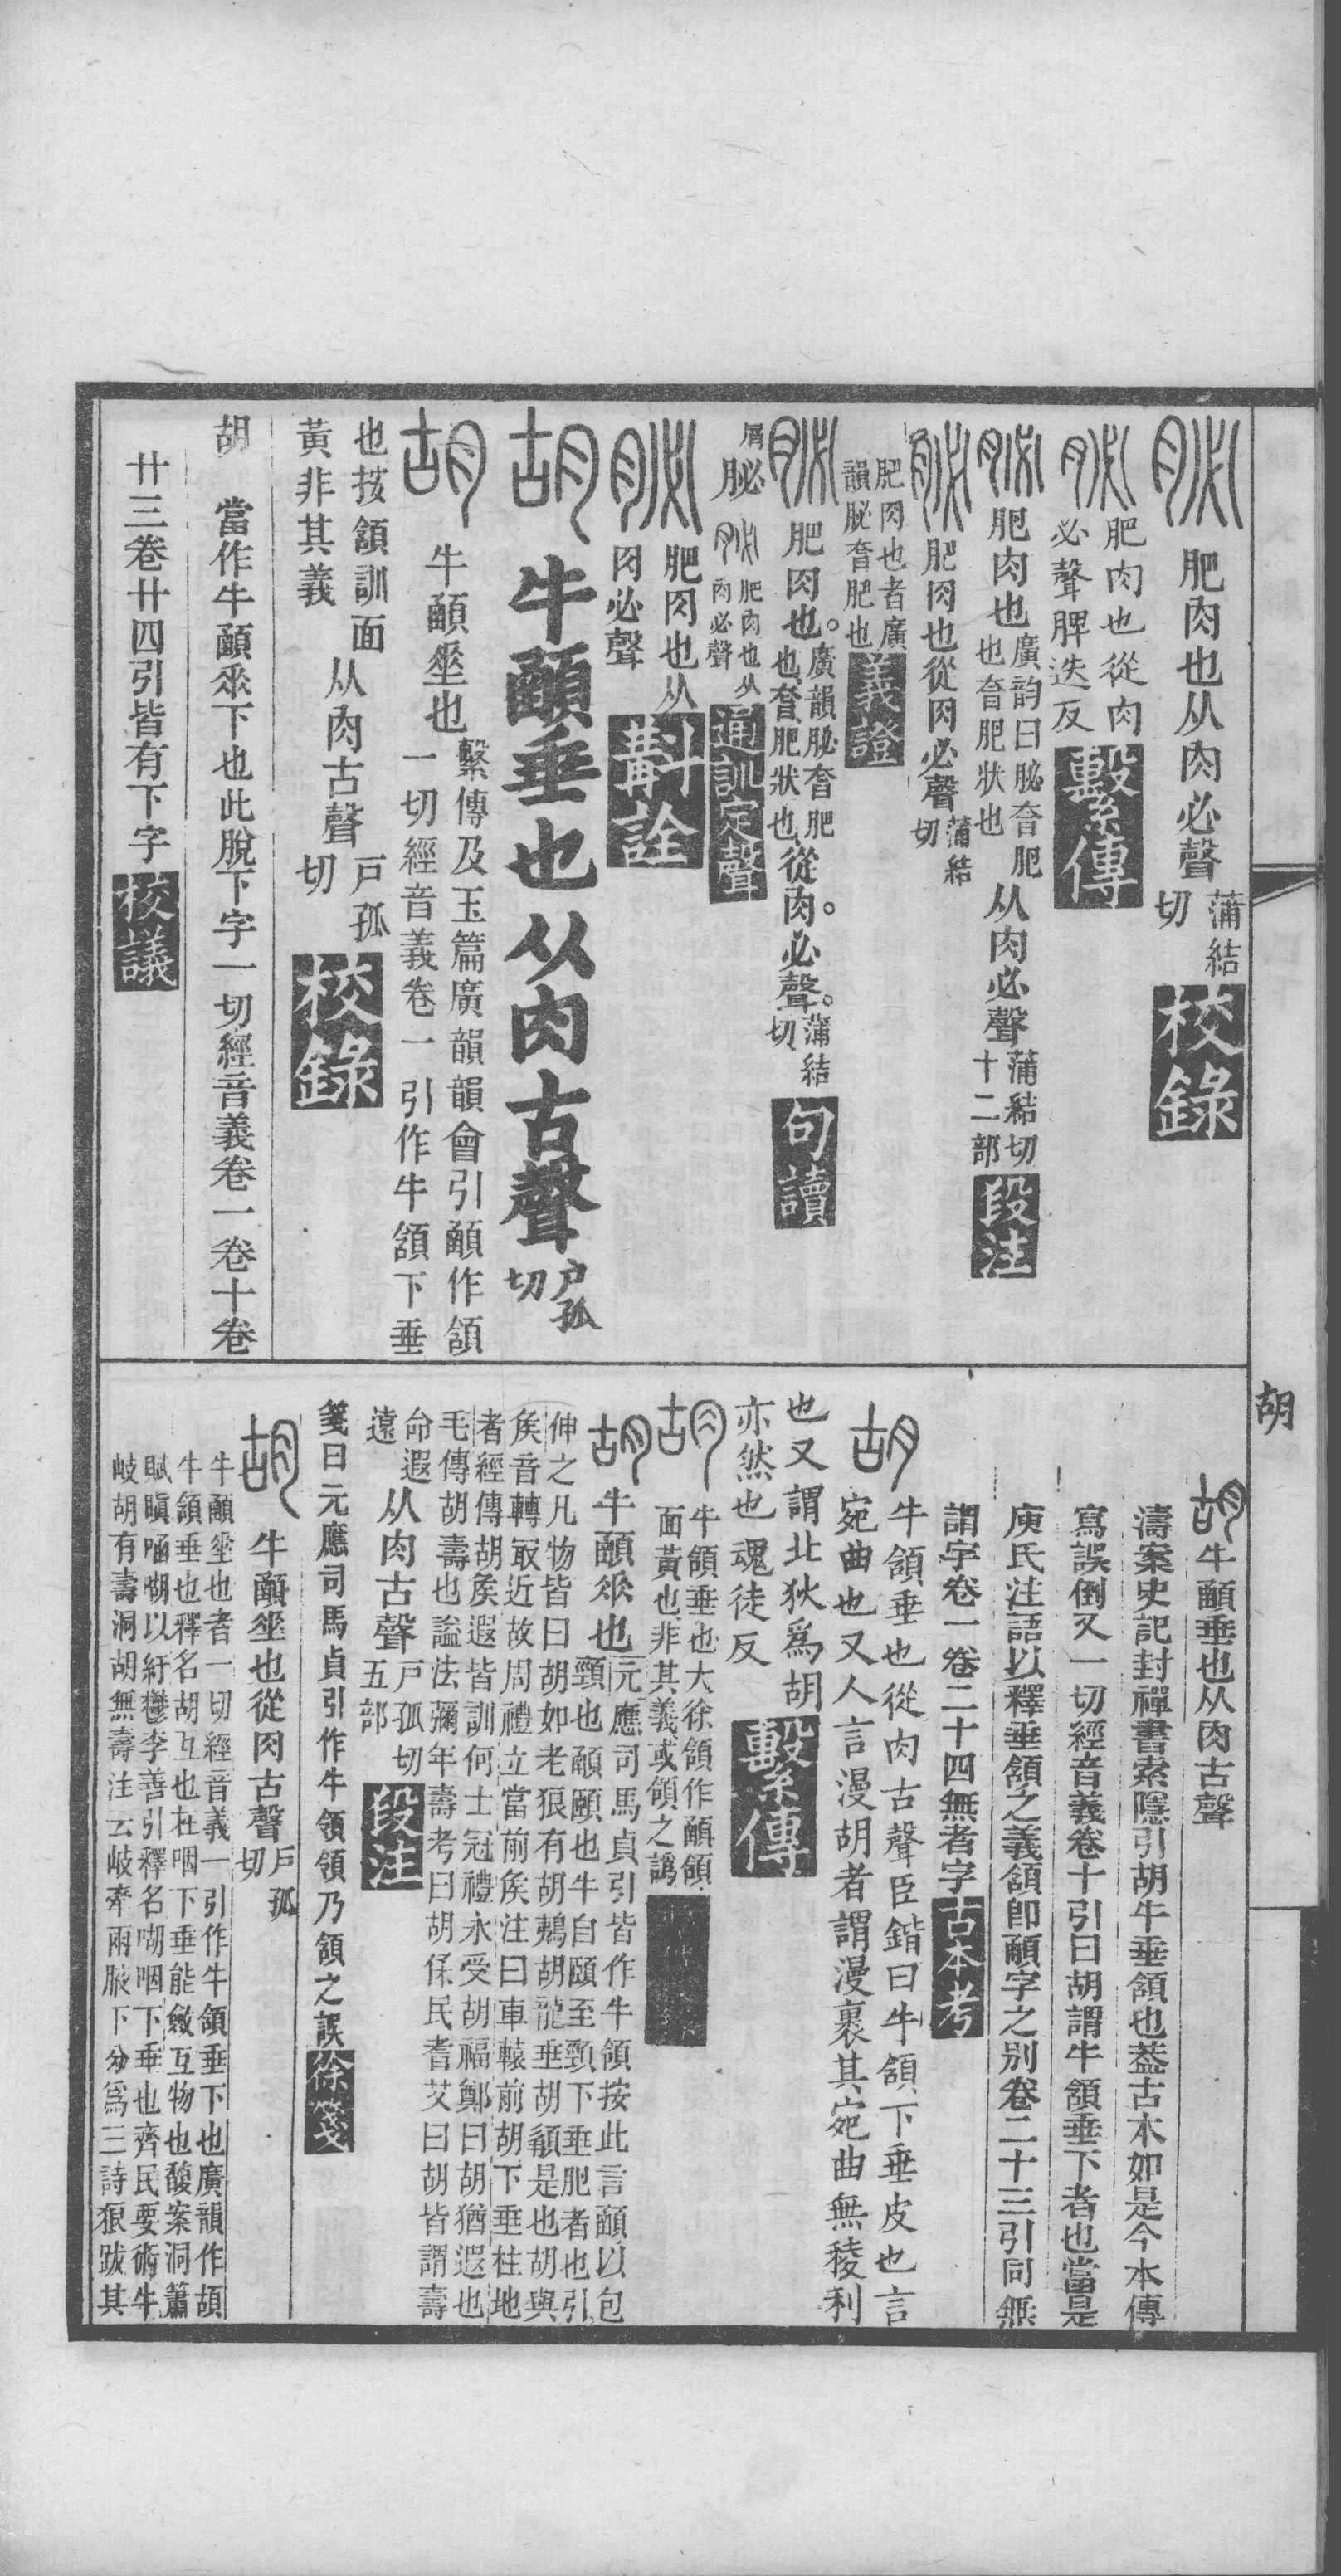 䏟 肥肉也从肉必聲 蒲結切 校錄
䏟 肥肉也從肉必聲脾迭反 繫傳
䏟 肥肉也 廣韵曰䏟㚎肥也㚎肥狀也 从肉必聲 蒲結切十二部 段注
䏟 肥肉也從肉必聲 蒲結切
肥肉也者廣韻䏟㚎肥也 義證
䏟 肥肉也。廣韻䏟㚎肥也㚎肥狀也 從肉。必聲。蒲結切 句讀
屑 䏟 䏟 肥肉也从肉必聲 通訓定聲
䏟 肥肉也从肉必聲 斠詮
胡 牛顄垂也从肉古聲 户孤切
胡 牛顄垂也 繫傳及玉篇廣韻韻會引顄作頷一切經音義卷一引作牛頷下垂
也按頷訓面黃非其義 从肉古聲 戸孤切 校錄
胡 當作牛顄𠂹下也此脫下字一切經音義卷一卷十卷
廿三卷廿四引皆有下字 校議
胡
胡 牛顄垂也从肉古聲
濤案史記封禪書索隱引胡牛垂頷也葢古本如是今本傳
寫誤倒又一切經音義卷十引曰胡謂牛頷垂下者也當是
庾氏注語以釋垂頷之義頷卽顄字之別卷二十三引同無
謂字卷一卷二十四無者字 古本考
胡 牛頷垂也從肉古聲臣鍇曰牛頷下垂皮也言
宛曲也又人言漫胡者謂漫裹其宛曲無稜利
也又謂北狄爲胡
亦然也魂徒反 繫傳
胡 牛頷垂也大徐頷作顄頷
面黃也非其義或頷之譌
胡 牛顄𠂹也 元應司馬貞引皆作牛頷按此言顄以包
頸也顄頤也牛自頤至頸下垂肥者也引
伸之凡物皆曰胡如老狼有胡鵜胡龍垂胡䫇是也胡與
矦音轉㝡近故周禮立當前矦注曰車轅前胡下垂柱地
者經傳胡矦遐皆訓何士冠禮永受胡福鄭曰胡猶遐也
毛傳胡壽也謚法彌年壽考曰胡保民耆艾曰胡皆謂壽
命遐遠 从肉古聲 戸孤切五部 段注
箋曰元應司馬貞引作牛領領乃頷之誤 徐箋
胡 牛顄垂也從肉古聲 戸孤切
牛顄垂也者一切經音義一引作牛頷垂下也廣韻作頡
牛頷垂也釋名胡互也在咽下垂能斂互物也馥案洞簫
賦瞋㖤㗅以紆鬱李善引釋名㗅咽下垂也齊民要術牛
岐胡有壽洞胡無壽注云岐胡牽兩腋下分爲三詩狼跋其